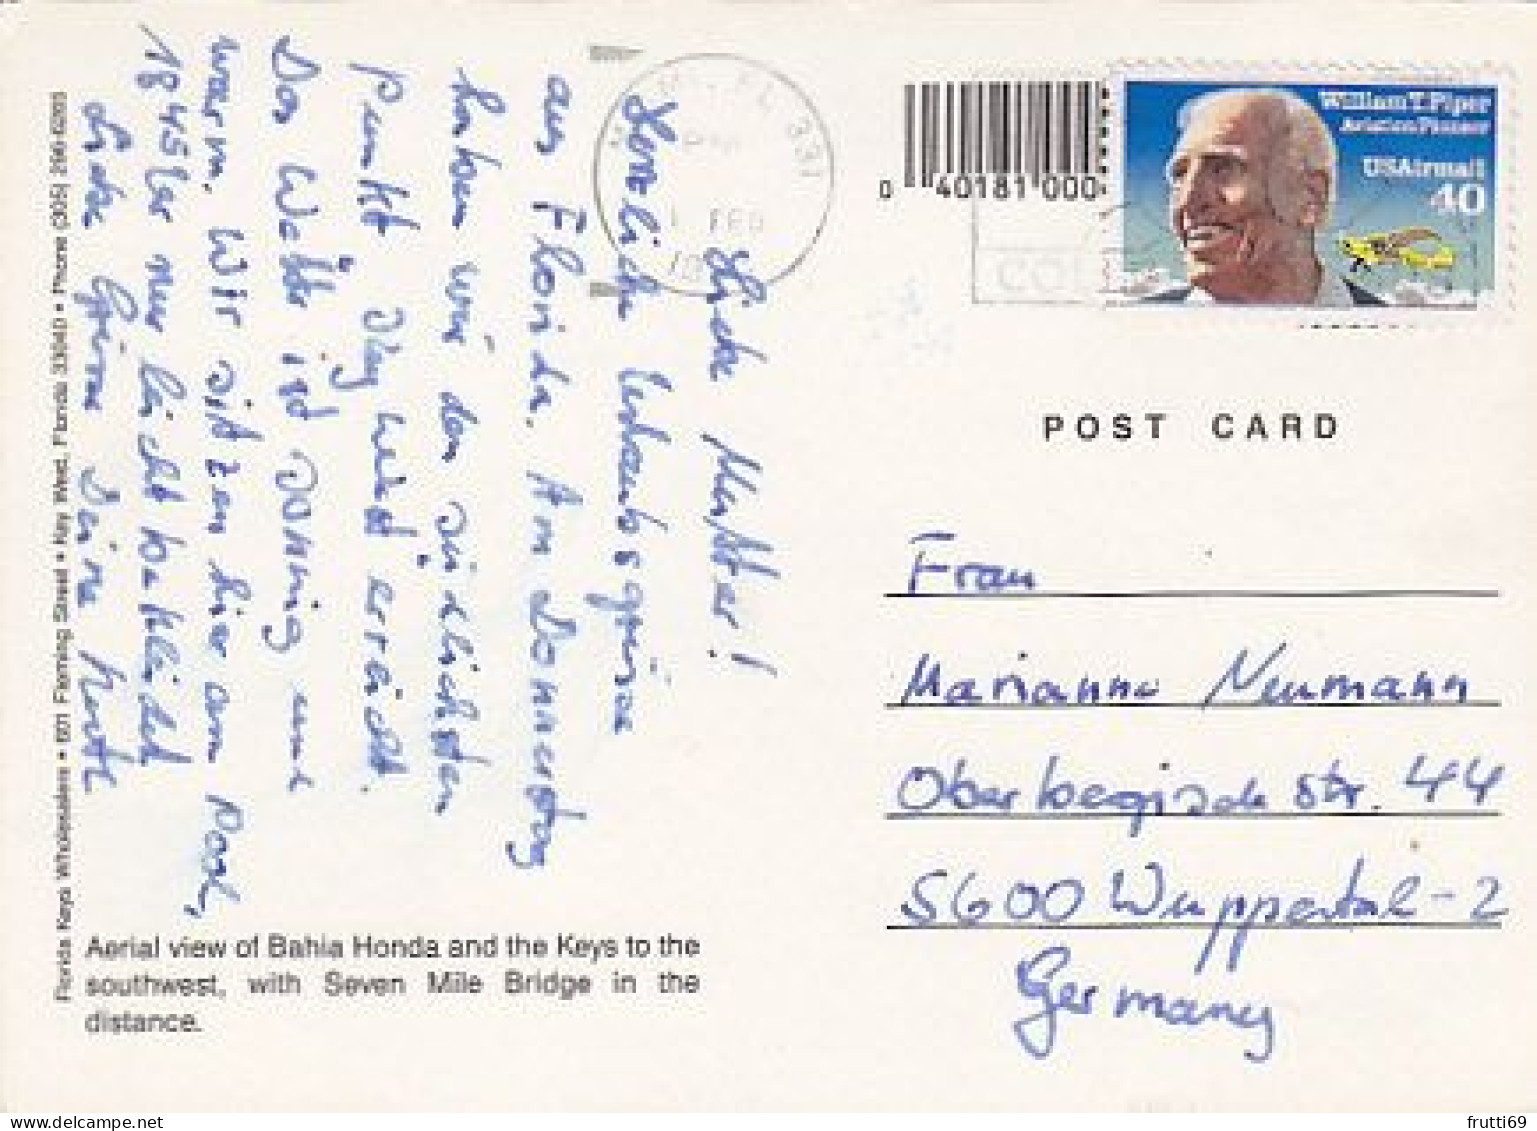 Liebe Mutter!
Herzliche Urlaubsgrüße
aus Florida. Am Donnerstag
haben wir den südlichsten
Punkt Key West erreicht.
Das Wetter ist sonnig und
warm. Wir sitzen hier am Pool,
18 45 Uhr nur leicht bekleidet
Liebe Grüße Deine
Florida Keys Wholesalers • 601 Fleming Street • Key West, Florida 33040 • Phone (305)
Aerial view of Bahia Honda and the Keys to the
southwest, with Seven Mile Bridge in the
distance.
FL 331
FEB
0 40181 000
William T. Piper
Aviation Pioneer
USAirmail
40
POST CARD
Frau
Marianne Neumann
Oberbergische Str. 44
5600 Wuppertal-2
Germany
frutti69